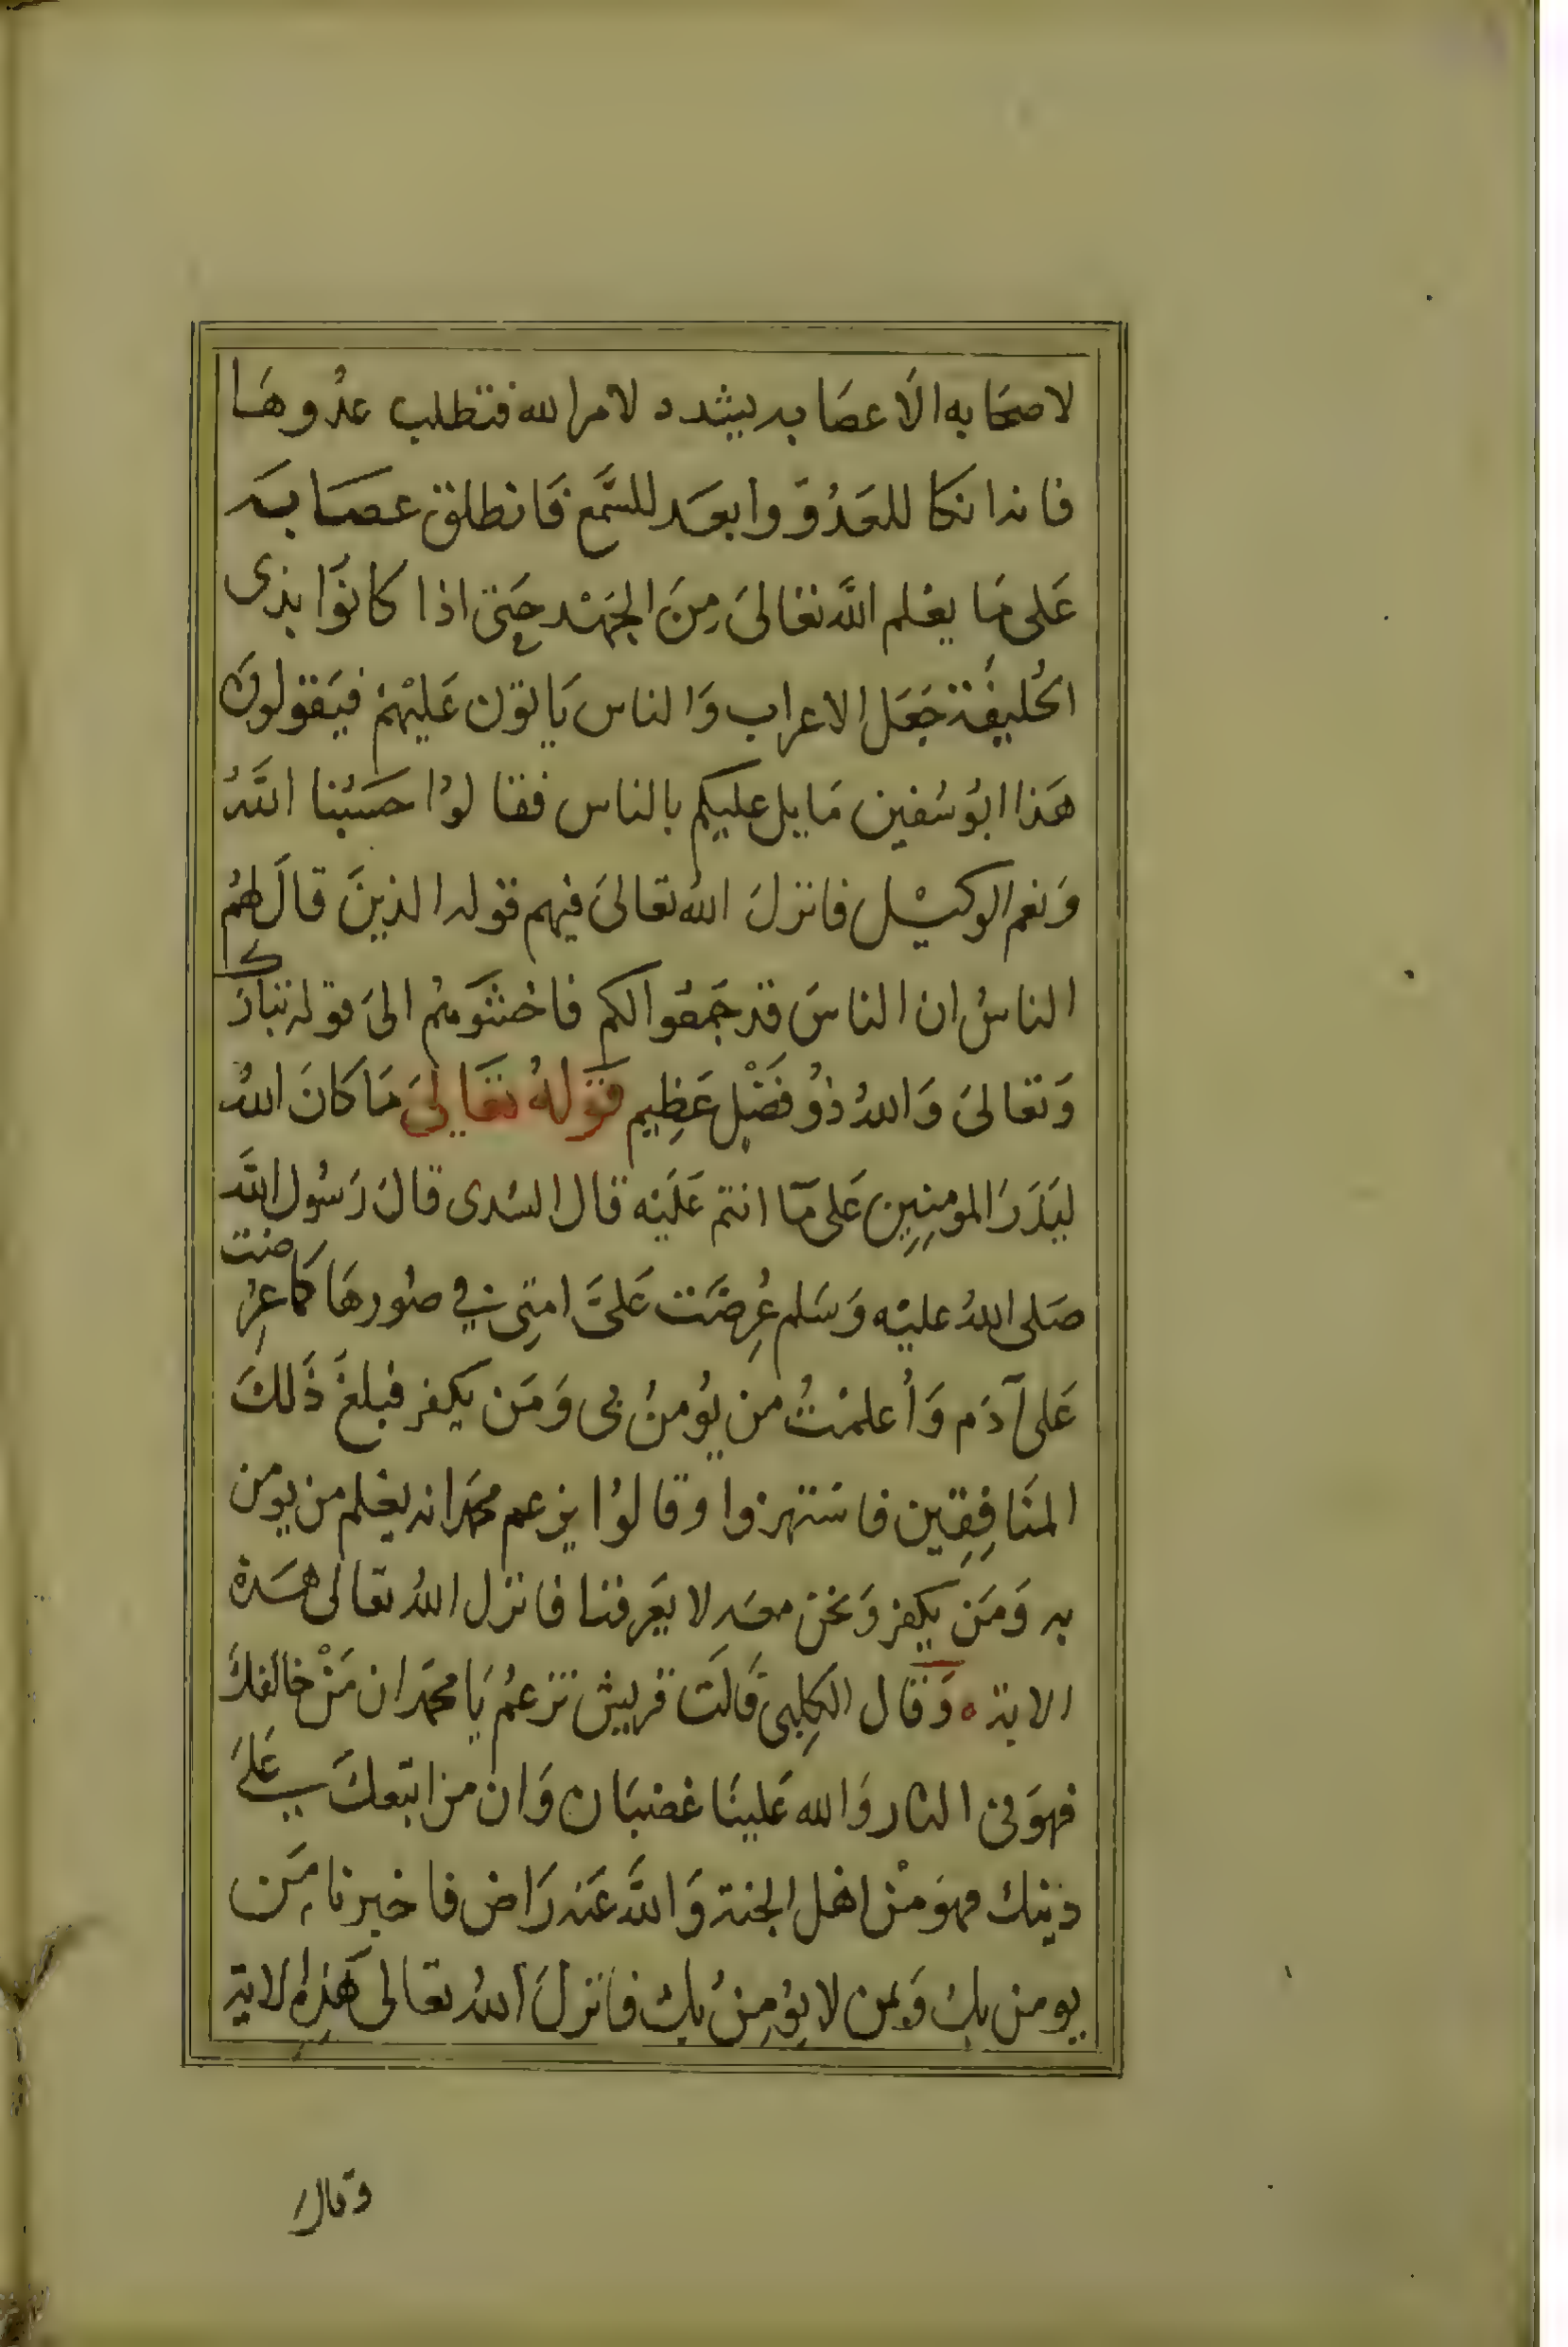 لاصحابه الا عصابه يشدد لامر الله فتطلب عدوها
فانه انكا للعدو وابعد للسمع فانطلق عصابه
عَلى مَا يعلم اللَّه تعَالىَ مِنَ الجهْد حَتى اذا كانوُا بذى
الحُليفَة جَعَل الاعراب وَالناس يَاتوُن عَليْهمْ فيَقولون
هَذا ابوُ سُفين مَايل عليكم بالناس فقالوُا حَسْبُنا اللَّهُ
وَنعم الوكيْل فانزلَ اللهُ تعَالىَ فيهم قوله الذينَ قالَ لهُم
الناسُ ان الناسَ قد جَمَعُوا لكم فاخشَوهُم الىَ قوله تبارَك
وَتعالىَ وَاللهُ ذوُ فَضْلٍ عَظِيم قَوْلهُ تعَالىَ مَا كانَ اللهُ
ليَذَرَ المومِنِين عَلى مَآ انتم عَلَيْه قال السُدى قالَ رَسُول اللَّه
صَلى اللهُ عليْه وَسَلم عُرِضَت عَلىَّ امتِى في صُورهَا كَما عِرُضت
عَلى آدَم وَأُعلمْتُ من يُومنُ بى وَمَن يكفر فبلغَ ذَلكَ
المنَافِقِين فاستهزوا وقالوُا يزعم محمَد انه يعْلم من يومن
به وَمَن يكفر وَنحن معَه لا يَعرفنا فانزل اللهُ تعالى هَذه
الاية ه وَقال الكلِبىّ قَالَت قريش تزعُم يَا محمَد ان مَنْ خالفك
فهوَ فى النار وَالله عَلينَا غضبَان وَان من اتبعكَ عَلىَ
دينك فهوَ مْن اهْل الجنة وَاللَّه عَنه رَاض فاخبرنا بمَن
يومن بك وَبمن لا يوُمِنُ بك فانزلَ اللهُ تعَالى هَذِه الاية
وقال